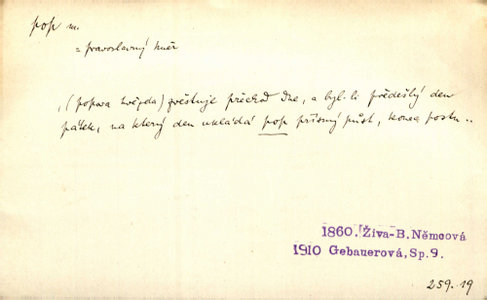 pop m.
= pravoslavný kněz
„(popova hvězda) zvěstuje příchod dne, a byl-li předešlý den
pátek, na který den ukládá pop přísný půst, konec postu..
1860. Živa-B. Němcová
1910 Gebauerová, Sp. 9.
259.19